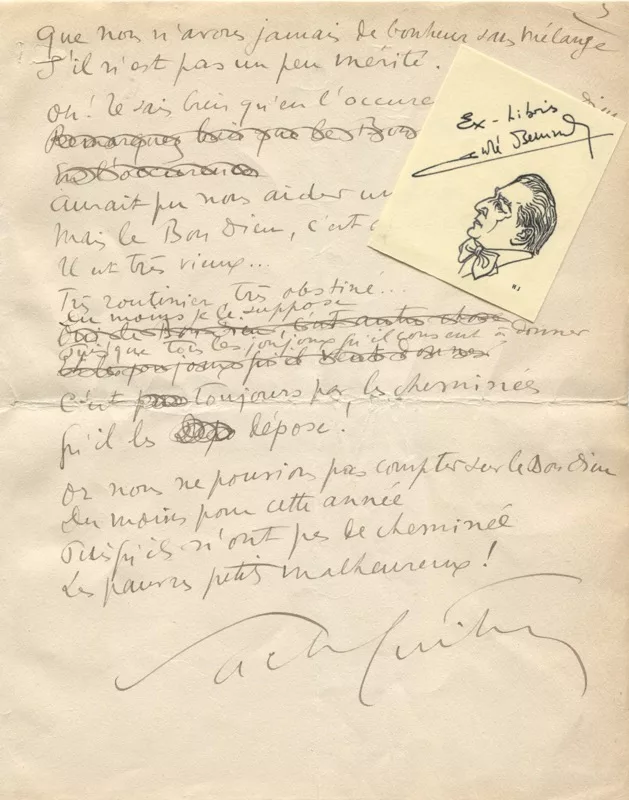 5
Que nous n'avons jamais de bonheur sans mélange
S'il n'est pas un peu mérité.
Oh! Je sais bien qu'en l'occure
Remarquez bien que le Bon
en l'occurence
aurait pu nous aider un
Mais le Bon Dieu, c'est
Il est très vieux...
Très routinier, très obstiné...
du moins je le suppose
Oui le Bon Dieu c'est autre chose
Puisque tous les joujoux qu'il consent à donner
C'est toujours par les cheminées
Qu'il les dépose!
Or nous ne pouvions pas compter sur le Bon Dieu
Du moins pour cette année
Puisqu'ils n'ont pas de cheminée
Les pauvres petits malheureux!
Sacha Guitry
Ex-Libris
André Bernard